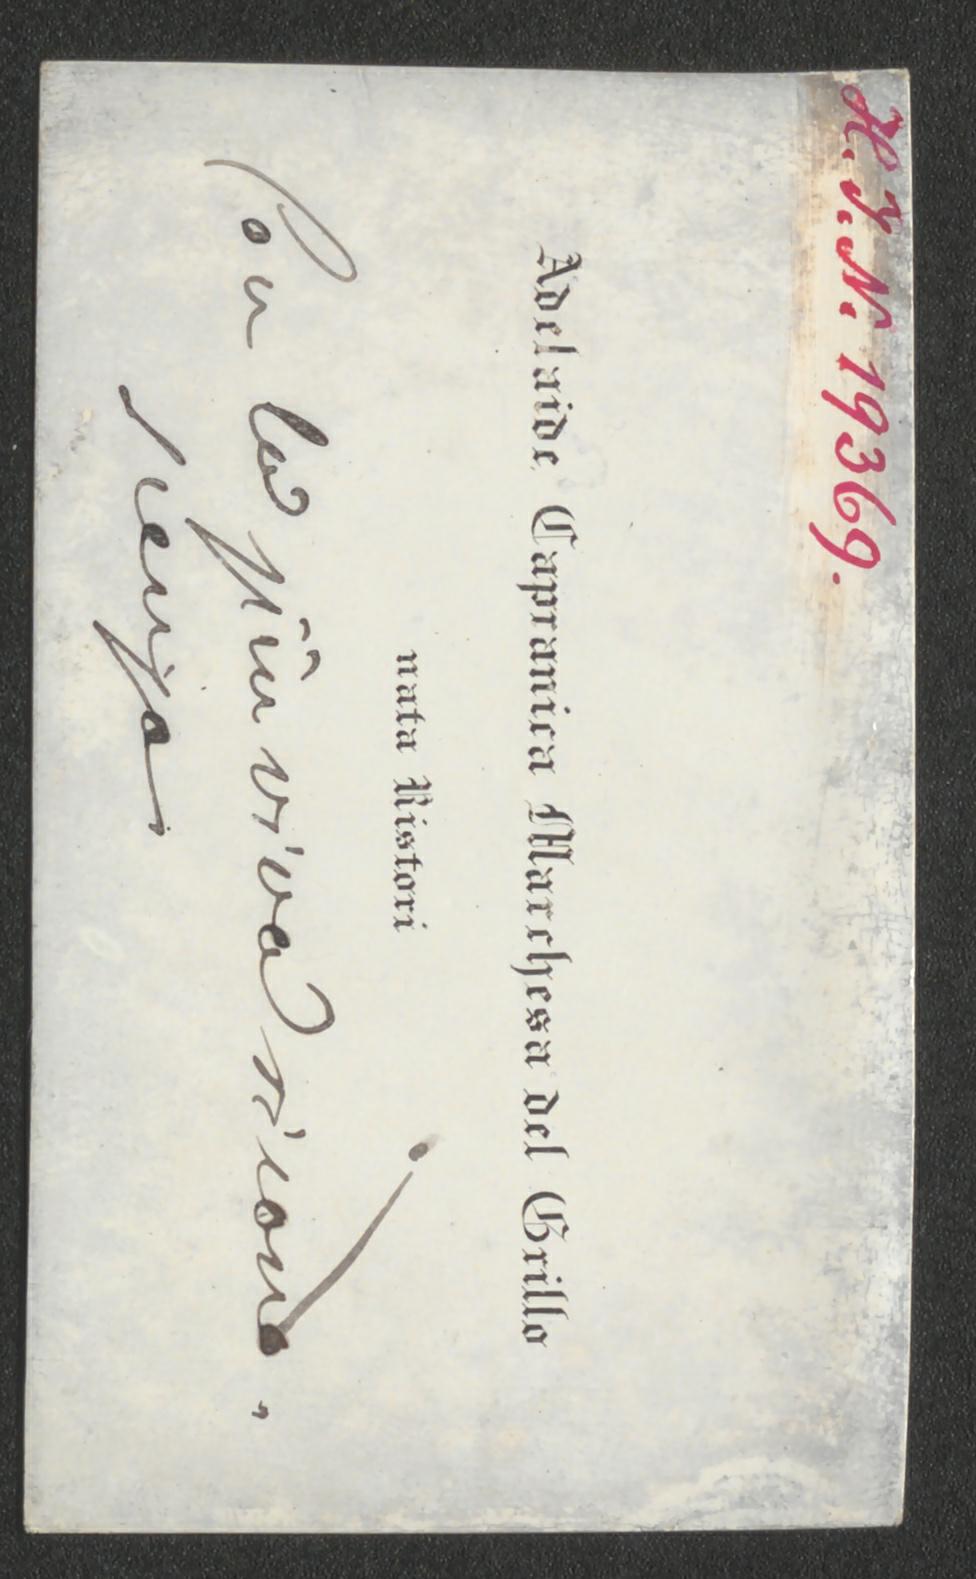 H. I. N. 19369.
Adelaide Capranica Marchesa del Grillo
nata Ristori
Con la più viva ricono-
scenza